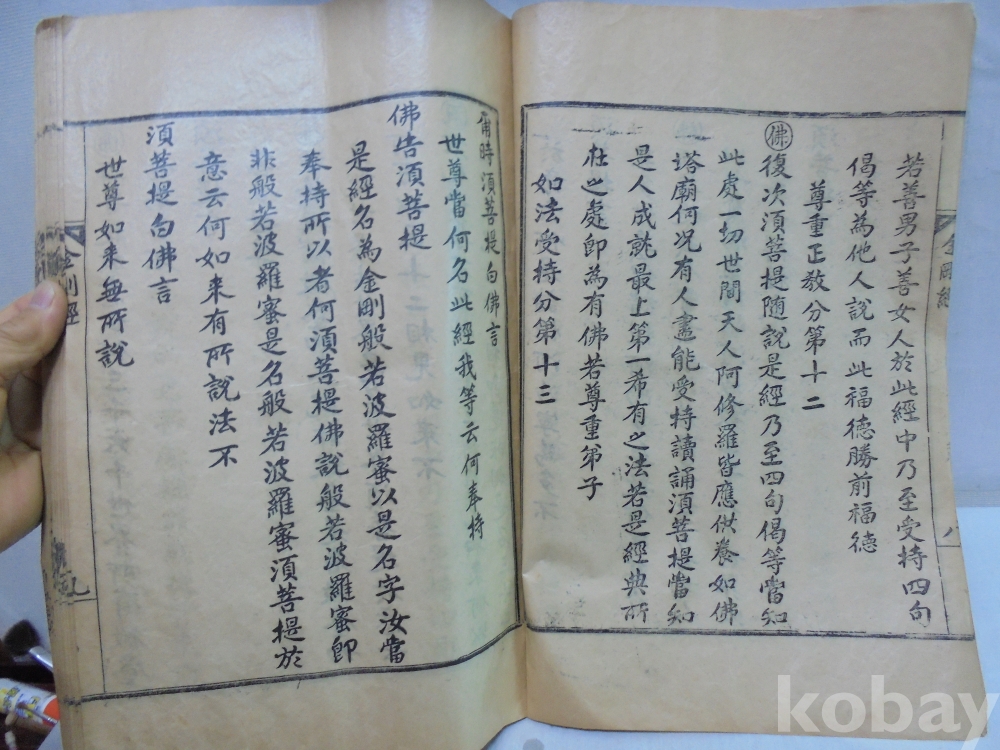 若善男子善女人於此經中乃至受持四句
偈等為他人說而此福德勝前福德
尊重正教分第十二
佛復次須菩提隨說是經乃至四句偈等當知
此處一切世間天人阿修羅皆應供養如佛
塔廟何况有人盡能受持讀誦須菩提當知
是人成就最上第一希有之法若是經典所
在之處即為有佛若尊重第子
如法受持分第十三
爾時須菩提白佛言
世尊當何名此經我等云何奉持
佛告須菩提
是經名為金剛般若波羅蜜以是名字汝當
奉持所以者何須菩提佛說般若波羅蜜即
非般若波羅蜜是名般若波羅蜜須菩提於
意云何如来有所說法不
須菩提白佛言
世尊如来無所說
金剛經
金剛經
八
kobay